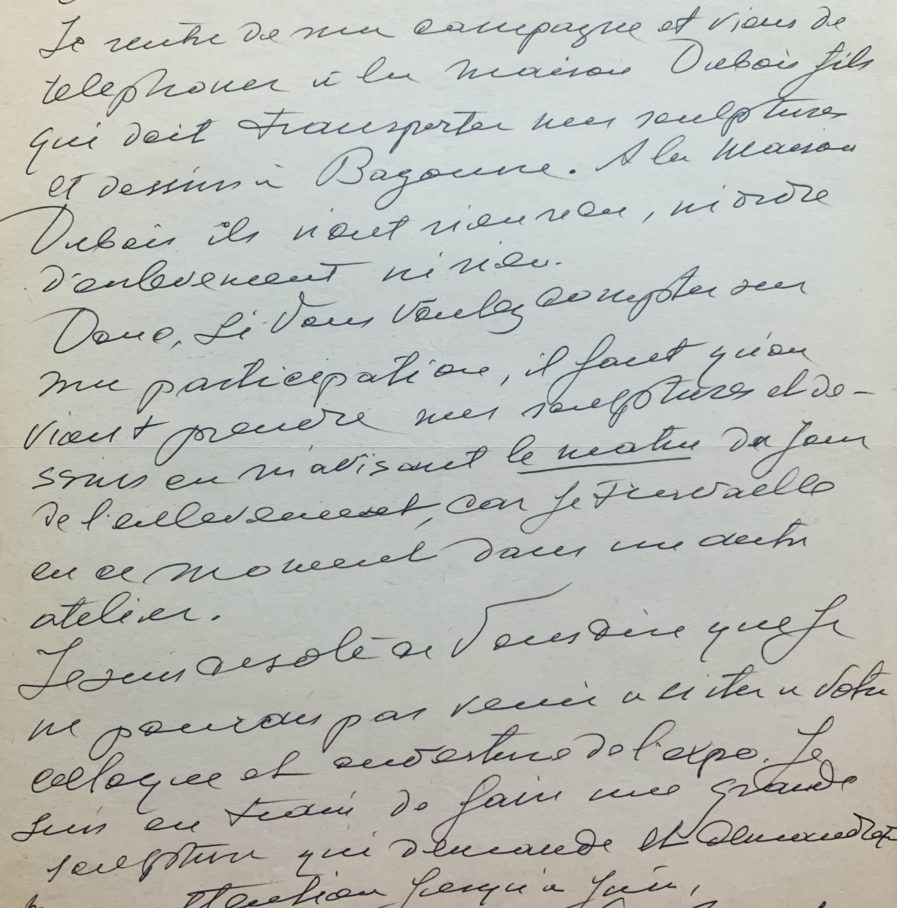 Je rentre de ma campagne et viens de
telephoner à la maison Dubois fils
qui doit transporter mes sculptures
et dessins à Bayonne. A la maison
Dubois ils n'ont rien reçu, ni ordre
d'enlevement ni rien.
Donc, si Vous Voulez compter sur
ma participation, il faut qu'on
vient prendre mes sculptures et de-
ssins en m'avisant le matin du jour
de l'enlevement, car je travaille
en ce moment dans un autre
atelier.
Je suis desolé de Vous dire que je
ne pourrais pas venir assister a Votre
colloque et ouverture de l'expo. Je
suis en train de faire une grande
sculpture qui demande et demandera
attention jusqu'a Juin,